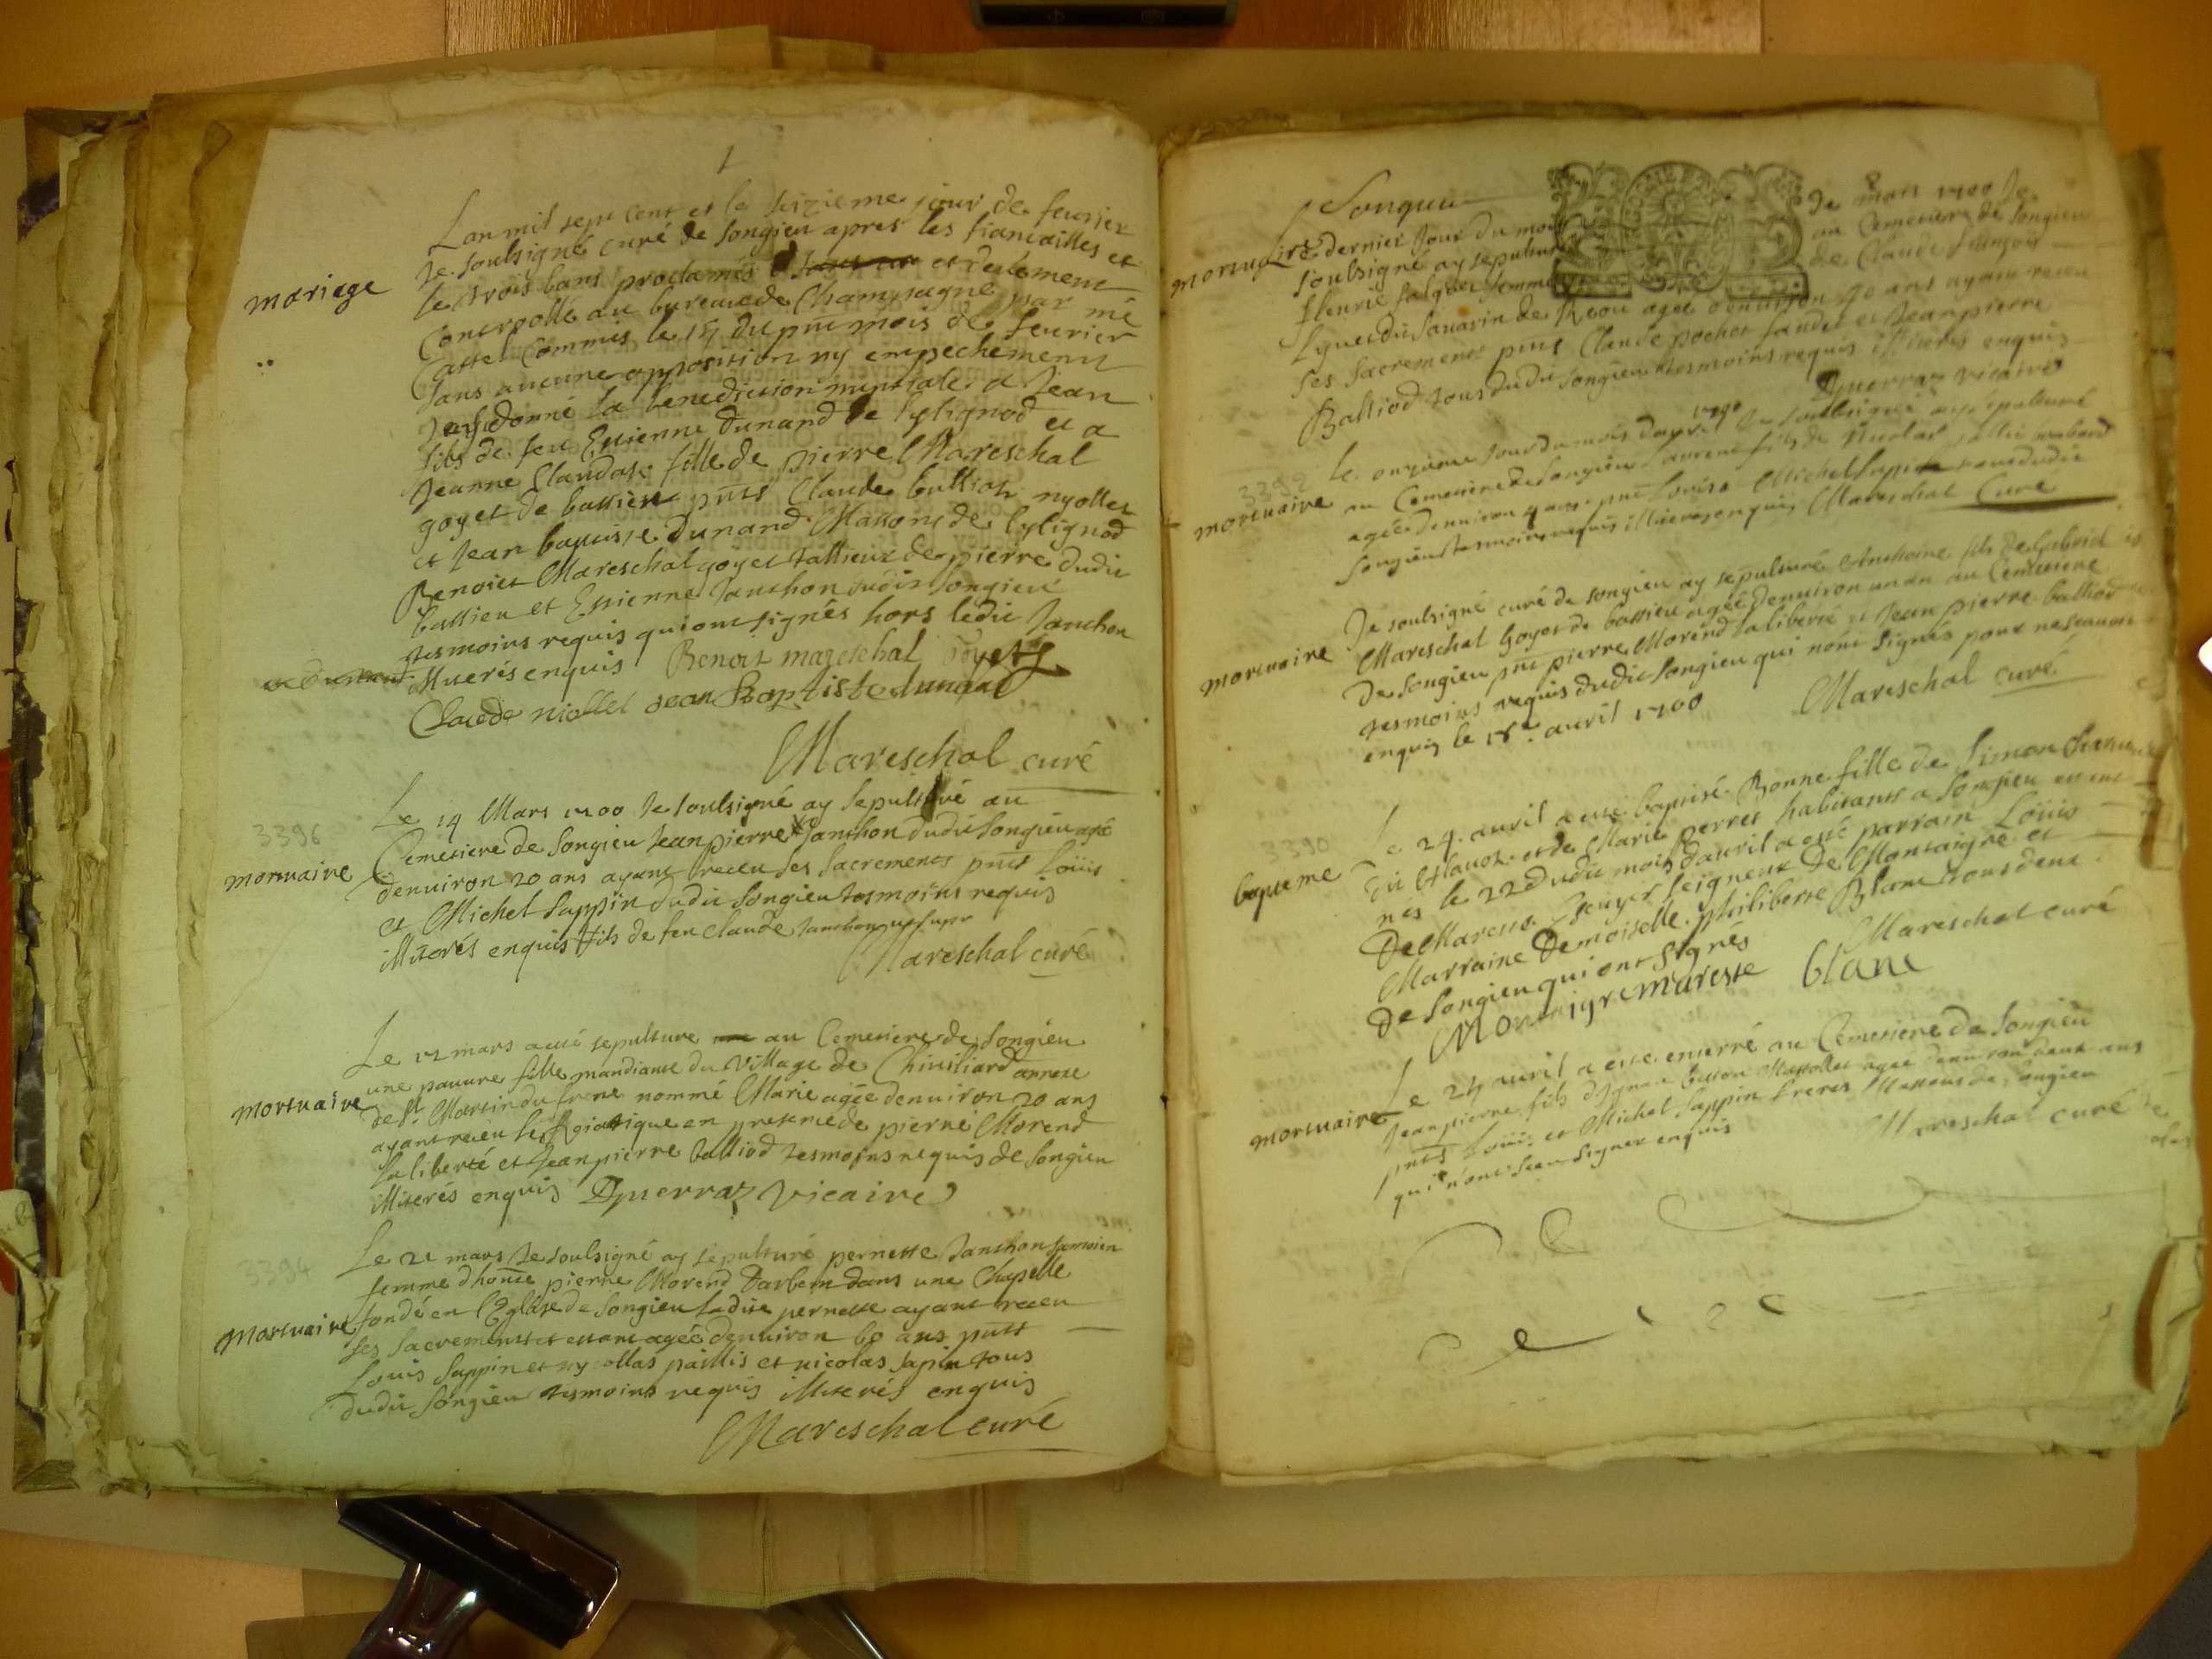 1
mariage
L'an mil sept cent et le seizieme jour de feuvrier
Je soubsigné curé de songieu apres les fiancailles et
les trois bans proclamés et deulement
Controollé au bureau de Champagne par me
Cattel Commis le 15 du pnt mois de feuvrier
sans aucune opposition ny empechement
J'ay donné la benediction nuptiale a Jean
fils de feu Estienne Dunand de lylignod et a
Jeanne Claudaz fille de pierre Mareschal
goyet de bassieu pnts Claude bullioz nyollet
et Jean bautiste Dunand Massons de lylignod
Benoict Mareschal goyet tallieur de pierre dudit
bassieu et Estienne Janthon dudit songieu
tesmoins requis qui ont signés hors ledit Janthon
illiterés enquis Benoit mareschal Goyet
Claude niollet Jean Baptiste dunand
Mareschal curé
3396
mortuaire
Le 14 Mars 1700 Je soulsigné ay sepulturé au
Cemetiere de songieu Jean pierre Janthon dudit songieu agé
denuiron 20 ans ayant receu ses sacrements pnts Loüis
et Michel Sappin dudit songieu tesmoins requis
illiterés enquis fils de feu Claude Janthon
Mareschal curé
mortuaire
Le 17 mars a esté sepulture au Cemetiere de songieu
une pauure fille mandiante du village de Chiuiliard annexe
de St Martin du frene nommé Marie agée denuiron 20 ans
ayant receu le en presence de pierre Morend
laliberté et Jean pierre balliod tesmoins requis de songieu
illiterés enquis Dpuerraz vicaire
3394
mortuaire
Le 21 mars Je soulsigné ay sepulturé pernette Janthon
femme d'honte pierre Morend Darbem dans une Chapelle
fondé en l'Eglise de songieu ladite pernette ayant receu
ses sacrements et estant agée denuiron 60 ans pnts
Louis Sappin et nycollas paillis et nicolas sapin tous
dudit songieu tesmoins requis illiterés enquis
Mareschal curé
Songieu
2
mortuaire
Le dernier Jour du mois de mars 1700 Je
soulsigné ay sepulturé au Cemetiere de songieu
fleurie femme de Claude françois
Lyuet du sauarin de agée denuiron 70 ans ayant receu
ses sacrements pnts Claude pochet et Jean pierre
Balliod tous dudit songieu tesmoins requis illiterés enquis
Dpuerraz vicaire
3392
mortuaire
Le onzieme Jour du mois dapvril 1700 Je soulsigné ay sepulturé
au Cemetiere de songieu Laurent fils de Nicolas
agée denuiron 4 ans pnts Louis et Michel Sapin tous dudit
songieu tesmoins requis illiterés enquis Mareschal Curé
mortuaire
Je soulsigné curé de songieu ay sepulturé Anthoine fils de Gabriel
Mareschal goyet de bassieu agée denuiron un an au Cemetiere
de songieu pnts pierre Morend laliberté et Jean pierre balliod
tesmoins requis dudit songieu qui nont signés pour ne scauoir
enquis le auril 1700
Mareschal curé
3390
bapteme
Le 24 auril a esté baptisé Bonne fille de Simon
et de Marie perret habitants a songieu
nés le 22 dudit mois dauril a esté parrain Loüis
De Mareste Escuyer seigneur De Montaigre et
Marraine Demoiselle philiberte Blanc tous deux
de songieu qui ont signés
Mareschal curé
Montaigre mareste blanc
mortuaire
Le 24 auril a esté enterré au Cemetiere de songieu
Jean pierre fils agée denuiron deux ans
pnts Loüis et Michel Sappin freres Massons de songieu
qui n'ont sceu signer enquis
Mareschal curé